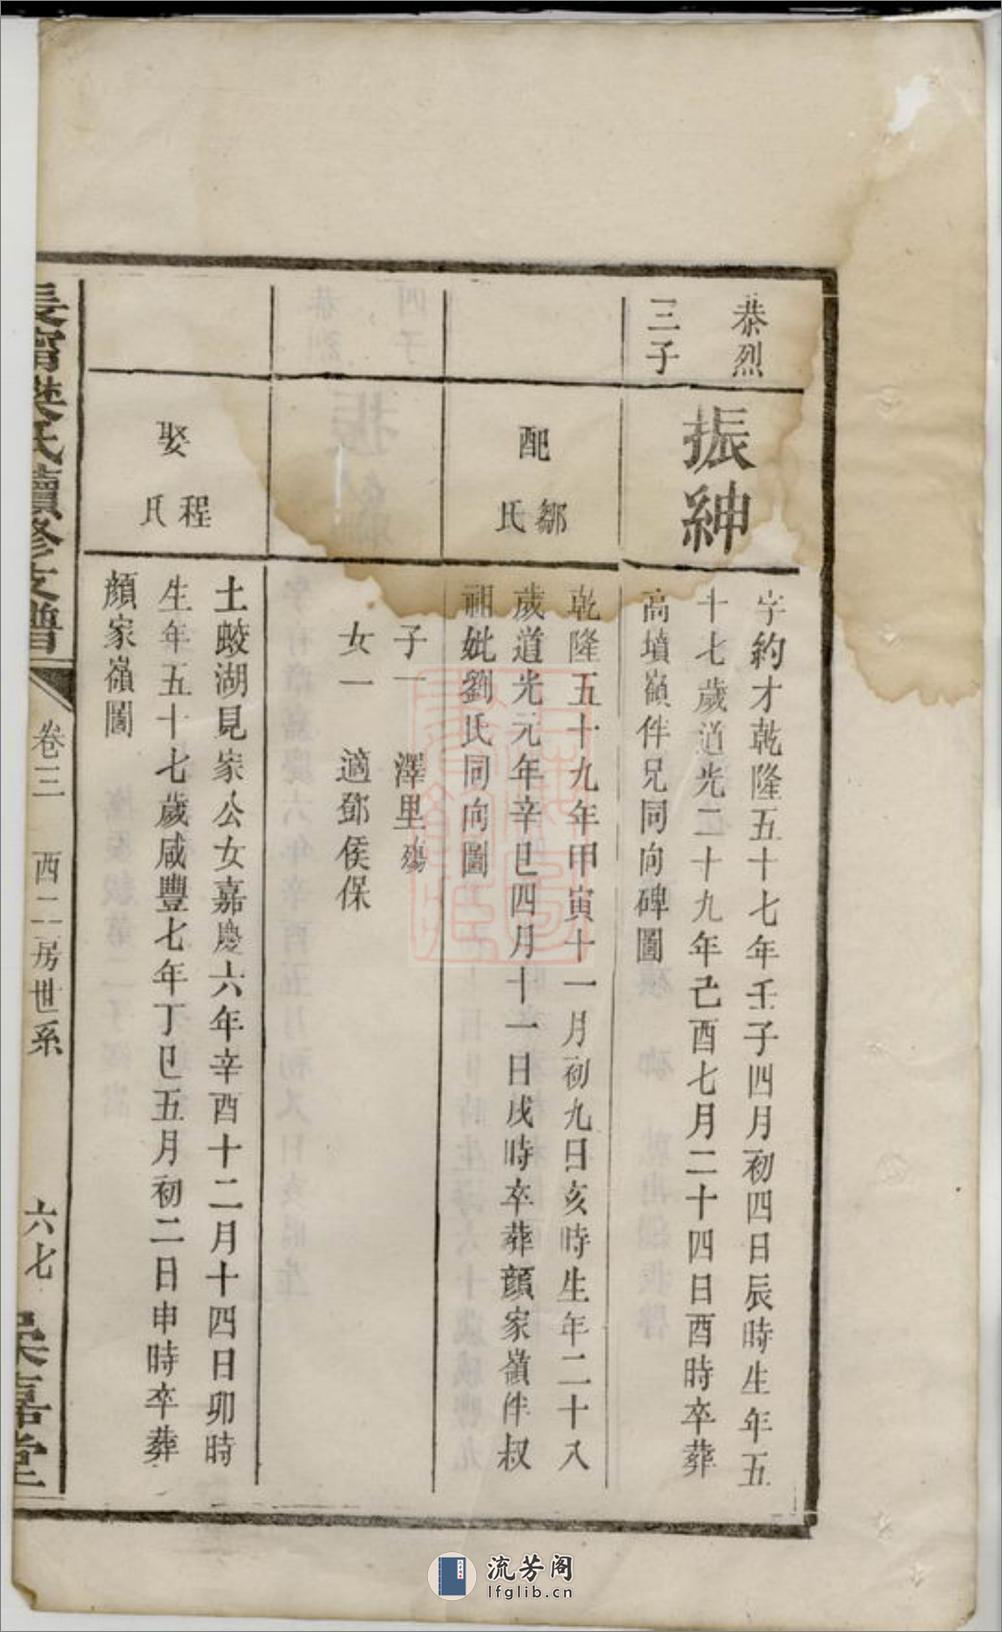 恭烈
三子
振紳
字約才乾隆五十七年壬子四月初四日辰時生年五
十七歲道光二十九年己酉七月二十四日酉時卒葬
高墳嶺伴兄同向碑圖
配鄒氏
乾隆五十九年甲寅十一月初九日亥時生年二十八
歲道光元年辛巳四月十一日戌時卒葬顔家嶺伴叔
祖妣劉氏同向圖
子一 澤里殤
女一 適鄧侯保
娶程氏
土蛟湖見家公女嘉慶六年辛酉十二月十四日卯時
生年五十七歲咸豐七年丁巳五月初二日申時卒葬
顔家嶺圖
氏續修支譜
卷三 西二房世系
六七
嘉堂
流芳阁
lfglib.cn